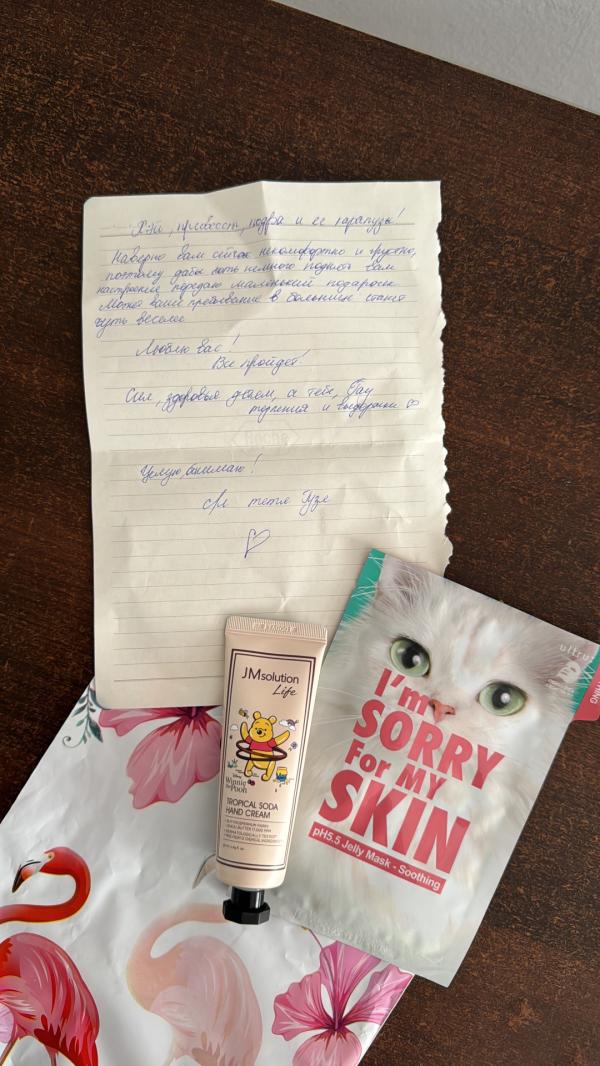 Хэй, привеет, подра и ее карапузы!
Наверно вам сейчас некомфортно и грустно,
поэтому дабы хоть немного поднять вам
настроение передаю маленький подарок
Может ваше пребывание в больнице станет
чуть веселее
Люблю вас!
Все пройдет!
Сил, здоровья детям, а тебе, Гау
терпения и выдержки
Целую, обнимаю!
тетя Гузя
JMsolution
Life
Disney
Winnie
the Pooh
TROPICAL SODA
HAND CREAM
ultru
I'm
SORRY
For MY
SKIN
pH5.5 Jelly Mask - Soothing